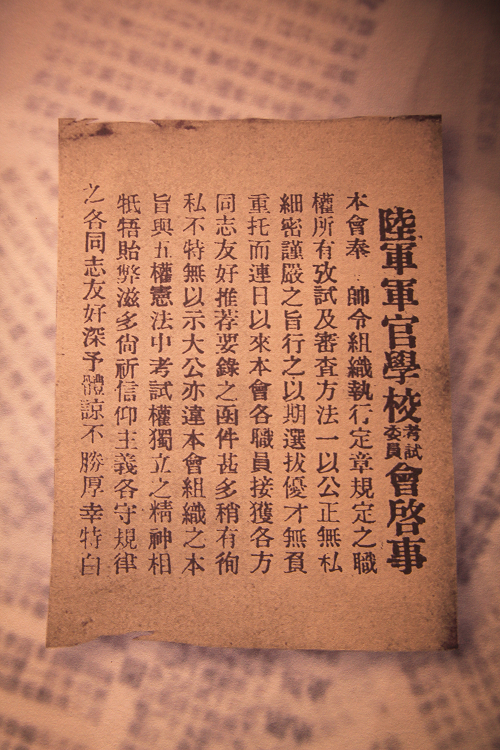 陸軍軍官學校考試委員會啓事
本會奉 帥令組織執行定章規定之職
權所有攷試及審查方法一以公正無私
細密謹嚴之旨行之以期選拔優才無負
重托而連日以來本會各職員接獲各方
同志友好推荐要錄之函件甚多稍有徇
私不特無以示大公亦違本會組織之本
旨與五權憲法中考試權獨立之精神相
牴牾貽弊滋多尙祈信仰主義各守規律
之各同志友好深予體諒不勝厚幸特白